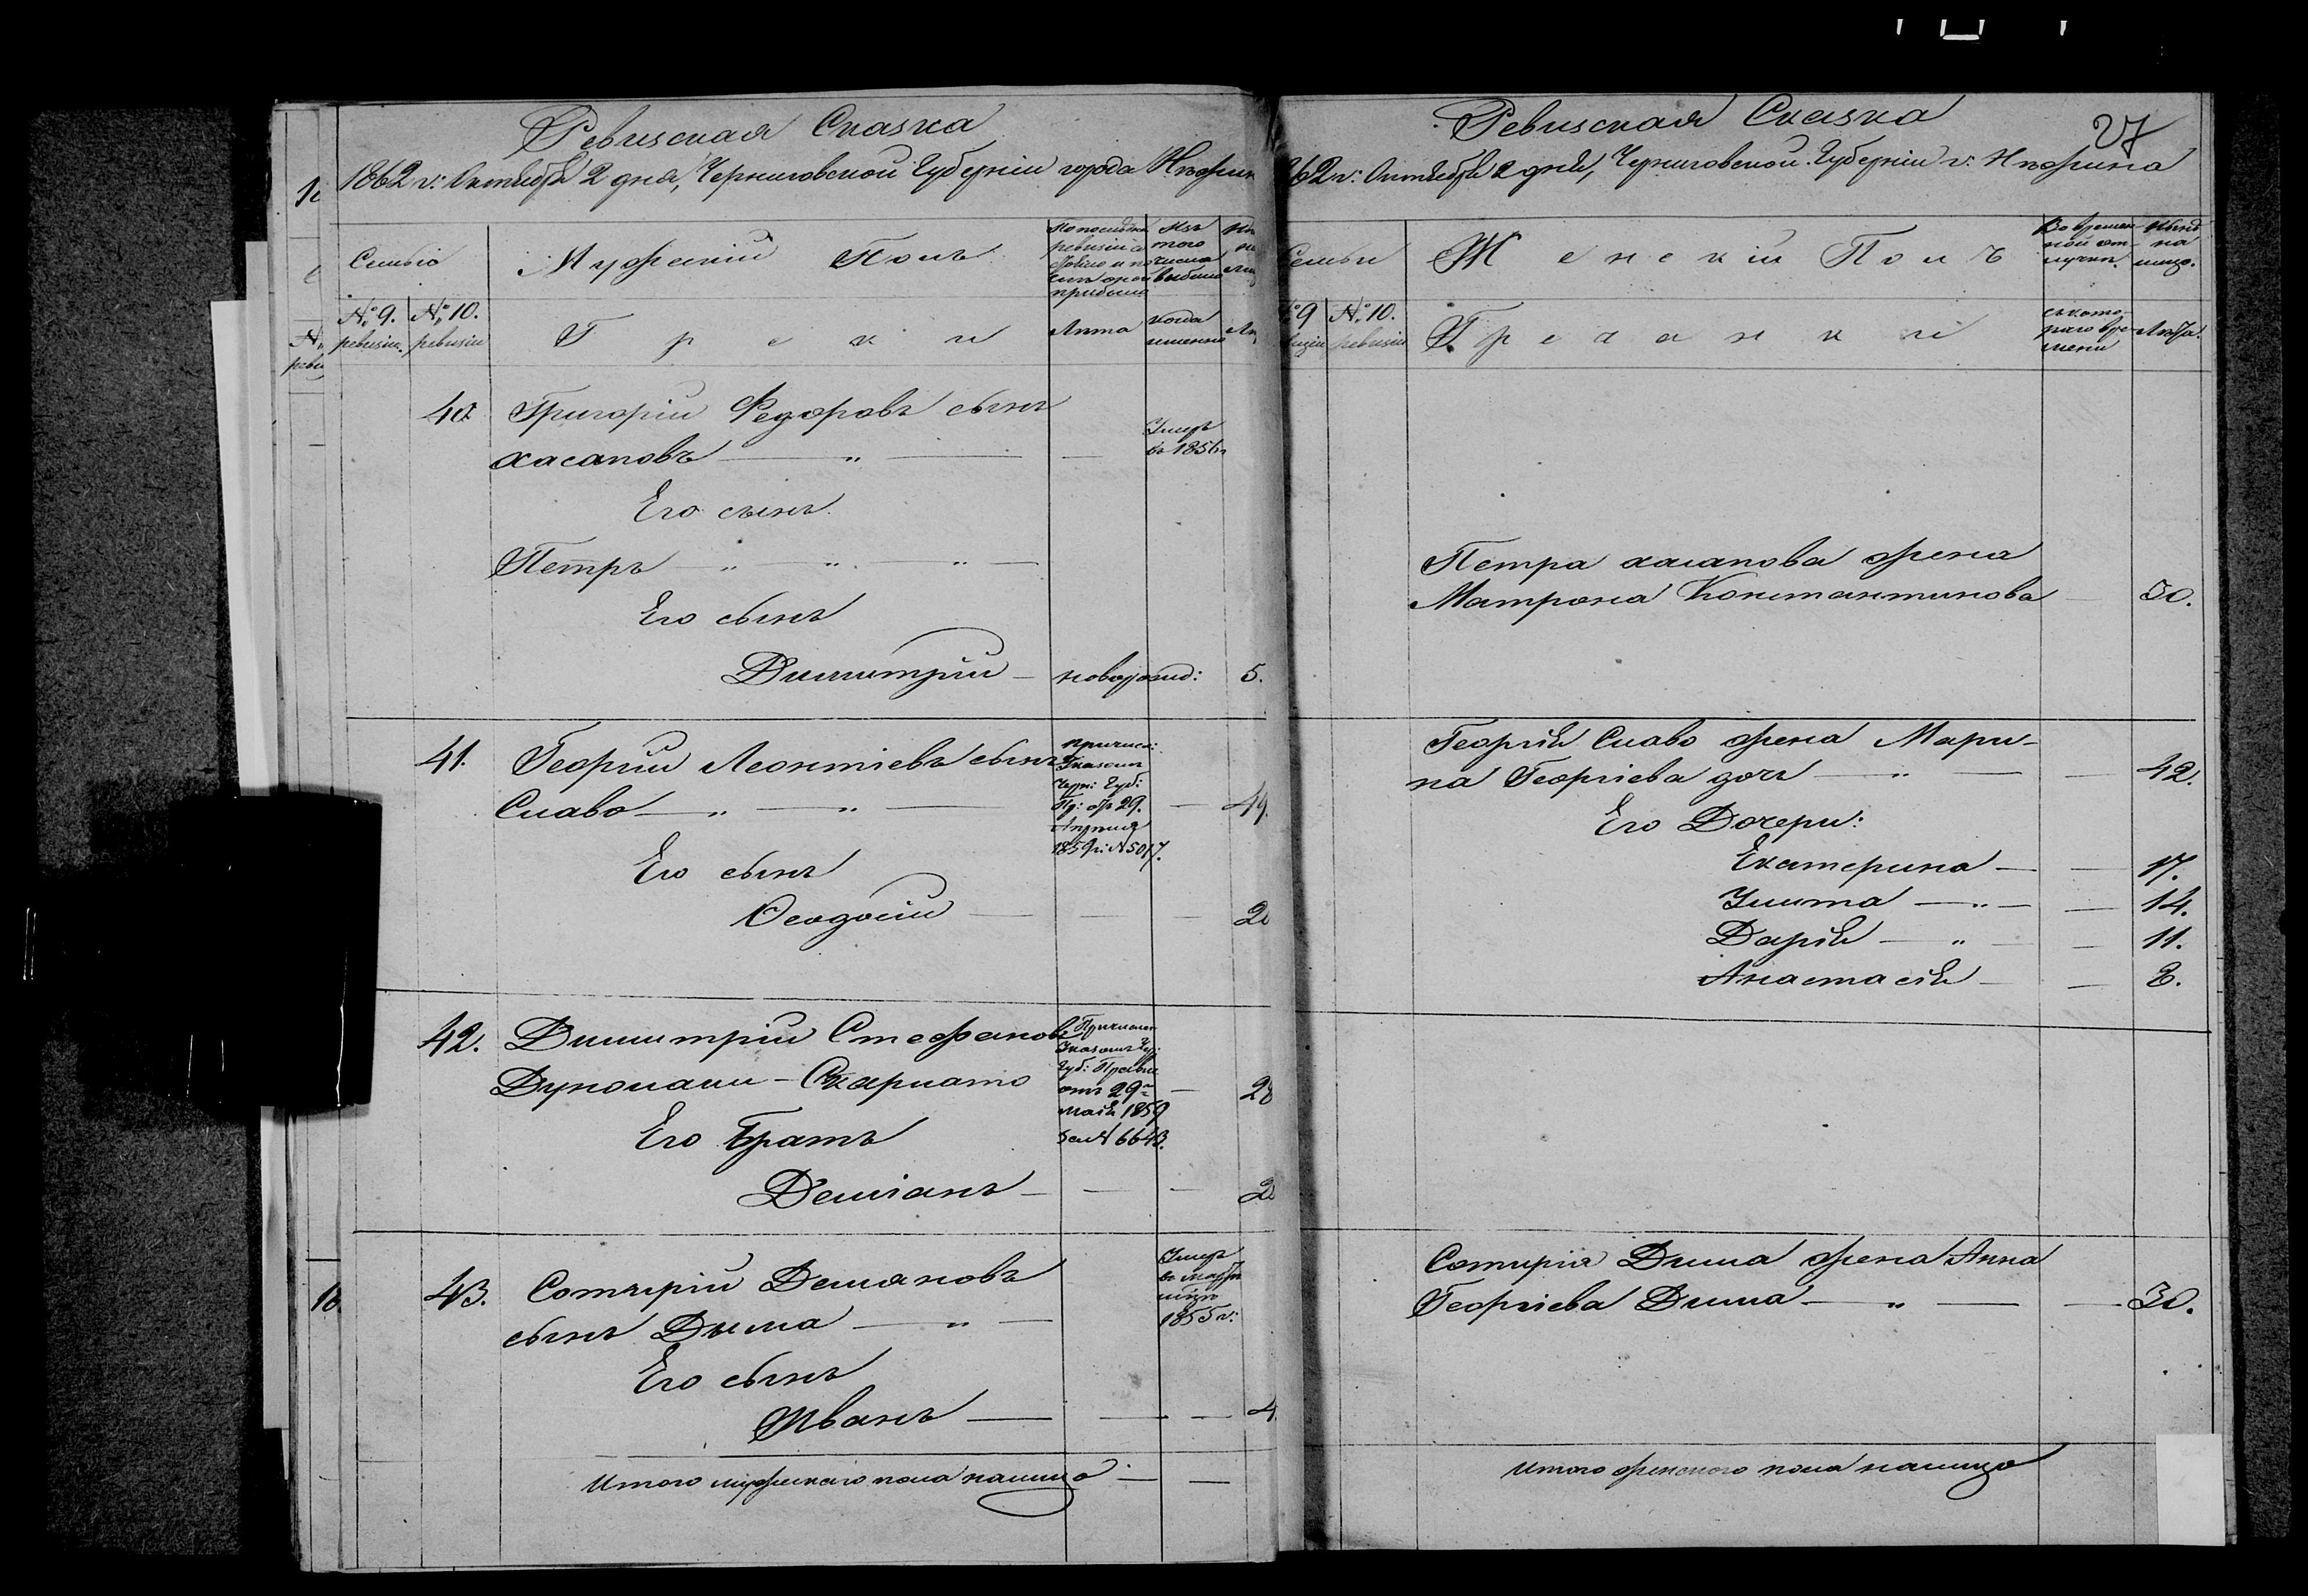 Ревизская Сказка
1862 г: Октября 2 дня, Черниговской Губерніи города Нѣжин
Семьіо
Мужескій Полъ
По послѣдней
ревизіи со
стояло и по
прибыло
Изъ
того
числа
выбыло
№ 9. ревизіи
№ 10. ревизіи
Греки
Лѣта
когда
именно
40
Григорій Федоровъ сынъ
Хасаповъ — „ —
Умеръ
въ 1856г
Его сынъ
Петръ — „ „ „ —
Его сынъ
Димитрій — новорожд: 5.
41. Георгій Леонтіевъ сынъ
Славо — „ — „ — 49.
причисл:
Указомъ
Черн: Губ:
Пр: отъ 29.
Апрѣля
1859 г: № 5017.
Его сынъ
Ѳеодосій — — —
42. Димитрій Стефановъ
Дукопали - Скарлато —
Причислен
Указомъ Чер:
Губ: Правл
отъ 29го
мая 1859
за № 6643.
Его Братъ
Деміанъ — — —
43. Сотирій Демановъ
сынъ Дима — „ —
Умеръ
въ мартѣ
мѣсяцѣ
1855 г:
Его сынъ
Иванъ — — — 4
Итого мужескаго пола налицо — —
Ревизская Сказка
27
862 г: Октября 2 дня, Черниговской Губерніи г: Нѣжина
Семьи
Женскій Полъ
Во времен
ной от-
лучкѣ.
Нынѣ
на
лицо.
№ 9
№ 10. ревизіи
Гречанки
съ кото-
раго вре-
мени
Лѣта.
Петра Хасапова жена
Матрона Константинова — 30.
Георгія Славо жена Мари-
на Георгіева дочь — „ — — 42.
Его Дочери:
Екатерина — — 17.
— „ — — 14.
Дарія — „ — — 11.
Анастасія — — 8.
Сотирія Дима жена Анна
Георгіева Дима — „ — — 30.
Итого женского пола налицо